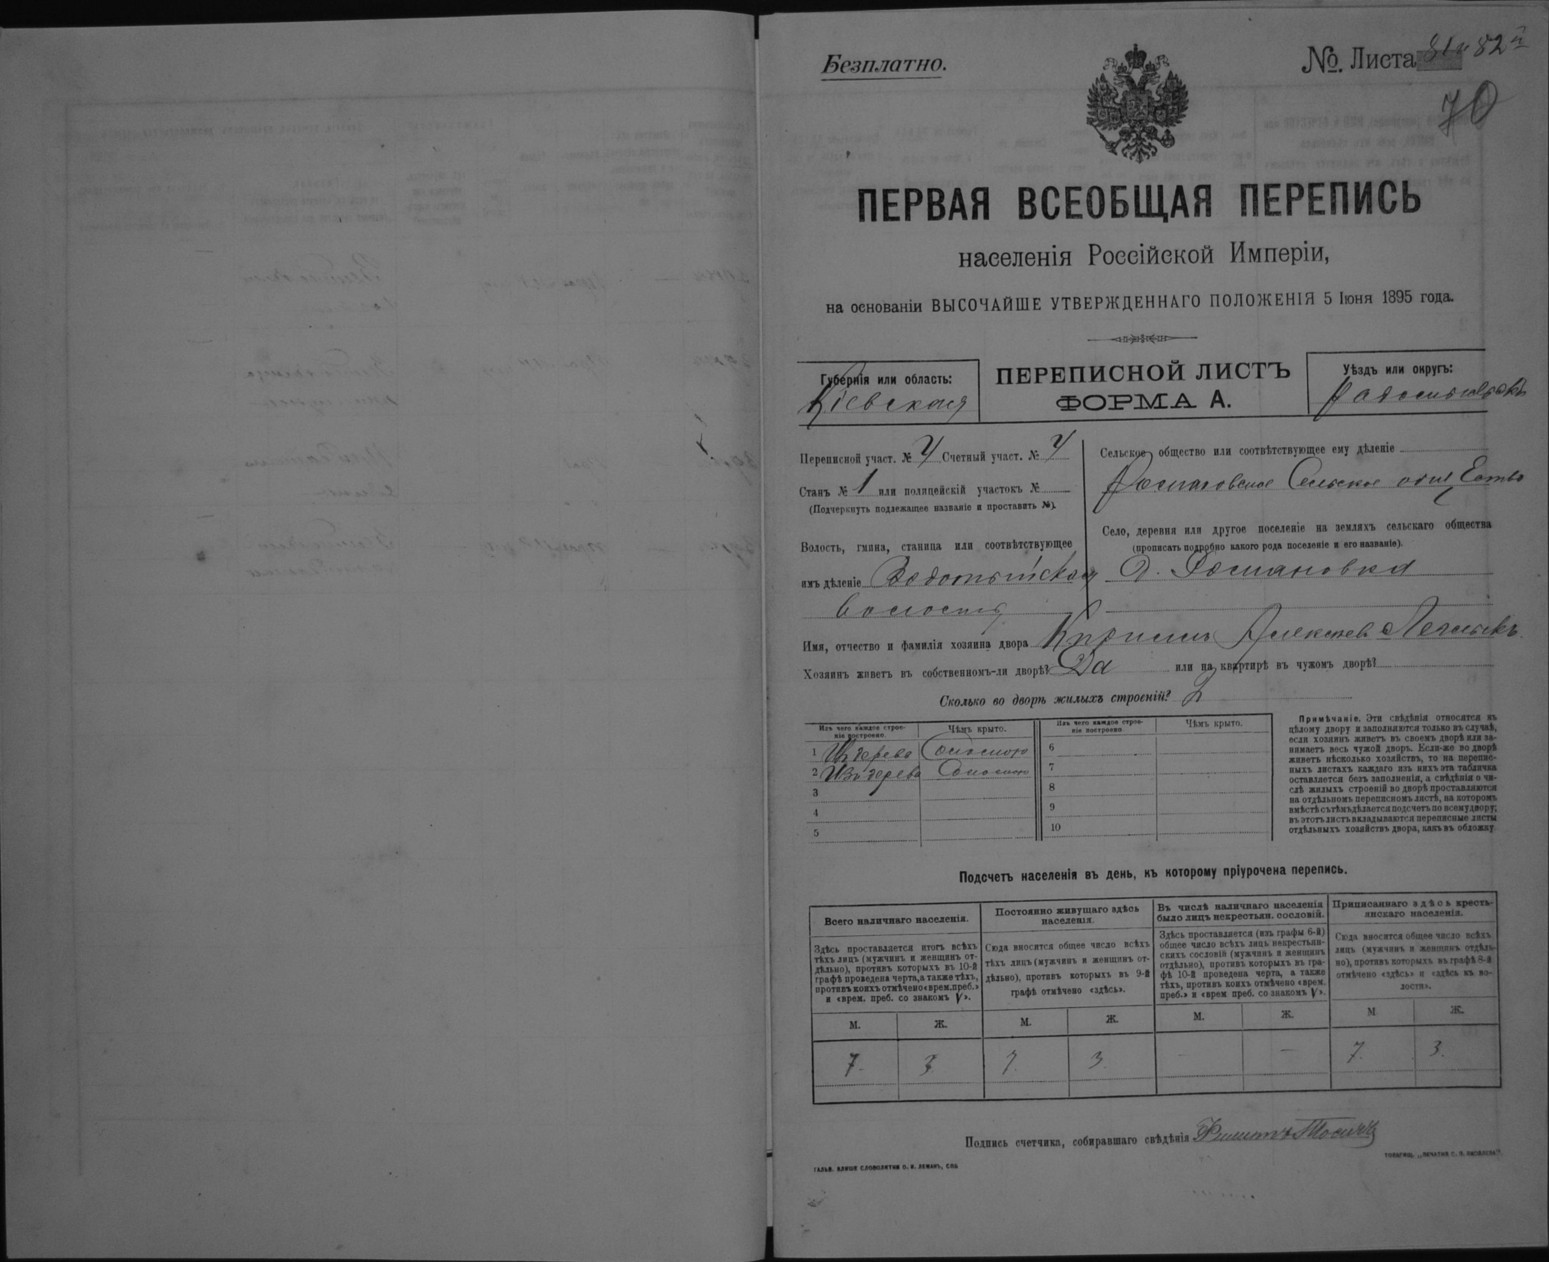 Безплатно.
№. Листа 82
70
ПЕРВАЯ ВСЕОБЩАЯ ПЕРЕПИСЬ
населенія Россійской Имперіи,
на основаніи ВЫСОЧАЙШЕ УТВЕРЖДЕННАГО ПОЛОЖЕНІЯ 5 Іюня 1895 года.
Губернія или область:
Кіевская
ПЕРЕПИСНОЙ ЛИСТЪ
ФОРМА А.
Уѣздъ или округъ:
Переписной участ. № Счетный участ. №
Станъ № 1 или полицейскій участокъ №
(Подчеркнуть подлежащее названіе и проставить №).
Волость, гмина, станица или соотвѣтствующее
имъ дѣленіе
волость
Сельское общество или соотвѣтствующее ему дѣленіе
Сельское общество
Село, деревня или другое поселеніе на земляхъ сельскаго общества
(прописать подробно какого рода поселеніе и его названіе).
Имя, отчество и фамилія хозяина двора Алексѣев
Хозяинъ живетъ въ собственномъ-ли дворѣ? Да или на квартирѣ въ чужомъ дворѣ?
Сколько во дворѣ жилыхъ строеній? 2
Изъ чего каждое строеніе построено. Чѣмъ крыто. Изъ чего каждое строеніе построено. Чѣмъ крыто.
1 Изъ дерева Соломою 6
2 Изъ дерева Соломою 7
3 8
4 9
5 10
Примѣчаніе. Эти свѣдѣнія относятся къ
цѣлому двору и заполняются только въ случаѣ,
если хозяинъ живетъ въ своемъ дворѣ или за-
нимаетъ весь чужой дворъ. Если-же во дворѣ
живетъ нѣсколько хозяйствъ, то на перепис-
ныхъ листахъ каждаго изъ нихъ эта табличка
оставляется безъ заполненія, а свѣдѣнія о чи-
слѣ жилыхъ строеній во дворѣ проставляются
на отдѣльномъ переписномъ листѣ, на которомъ
вмѣстѣ съ тѣмъ дѣлается подсчетъ по всему двору;
въ этотъ листъ вкладываются переписные листы
отдѣльныхъ хозяйствъ двора, какъ въ обложку
Подсчетъ населенія въ день, къ которому пріурочена перепись.
Всего наличнаго населенія.
Здѣсь проставляется итогъ всѣхъ
тѣхъ лицъ (мужчинъ и женщинъ от-
дѣльно), противъ которыхъ въ 10-й
графѣ проведена черта, а также тѣхъ,
противъ коихъ отмѣчено «врем. преб.»
и «врем. преб. со знакомъ V».
Постоянно живущаго здѣсь
населенія.
Сюда вносится общее число всѣхъ
тѣхъ лицъ (мужчинъ и женщинъ от-
дѣльно), противъ которыхъ въ 9-й
графѣ отмѣчено «здѣсь».
Въ числѣ наличнаго населенія
было лицъ некрестьян. сословій.
Здѣсь проставляется (изъ графы 6-й)
общее число всѣхъ лицъ некрестьян-
скихъ сословій (мужчинъ и женщинъ
отдѣльно), противъ которыхъ въ гра-
фѣ 10-й проведена черта, а также
тѣхъ, противъ коихъ отмѣчено «врем.
преб.» и «врем преб. со знакомъ V».
Приписаннаго здѣсь кресть-
янскаго населенія.
Сюда вносится общее число всѣхъ
лицъ (мужчинъ и женщинъ отдѣль-
но), противъ которыхъ въ графѣ 8-й
отмѣчено «здѣсь» и «здѣсь въ во-
лости».
М. Ж. М. Ж. М. Ж. М Ж.
7. 3 7. 3 - - 7. 3.
Подпись счетчика, собиравшаго свѣдѣнія